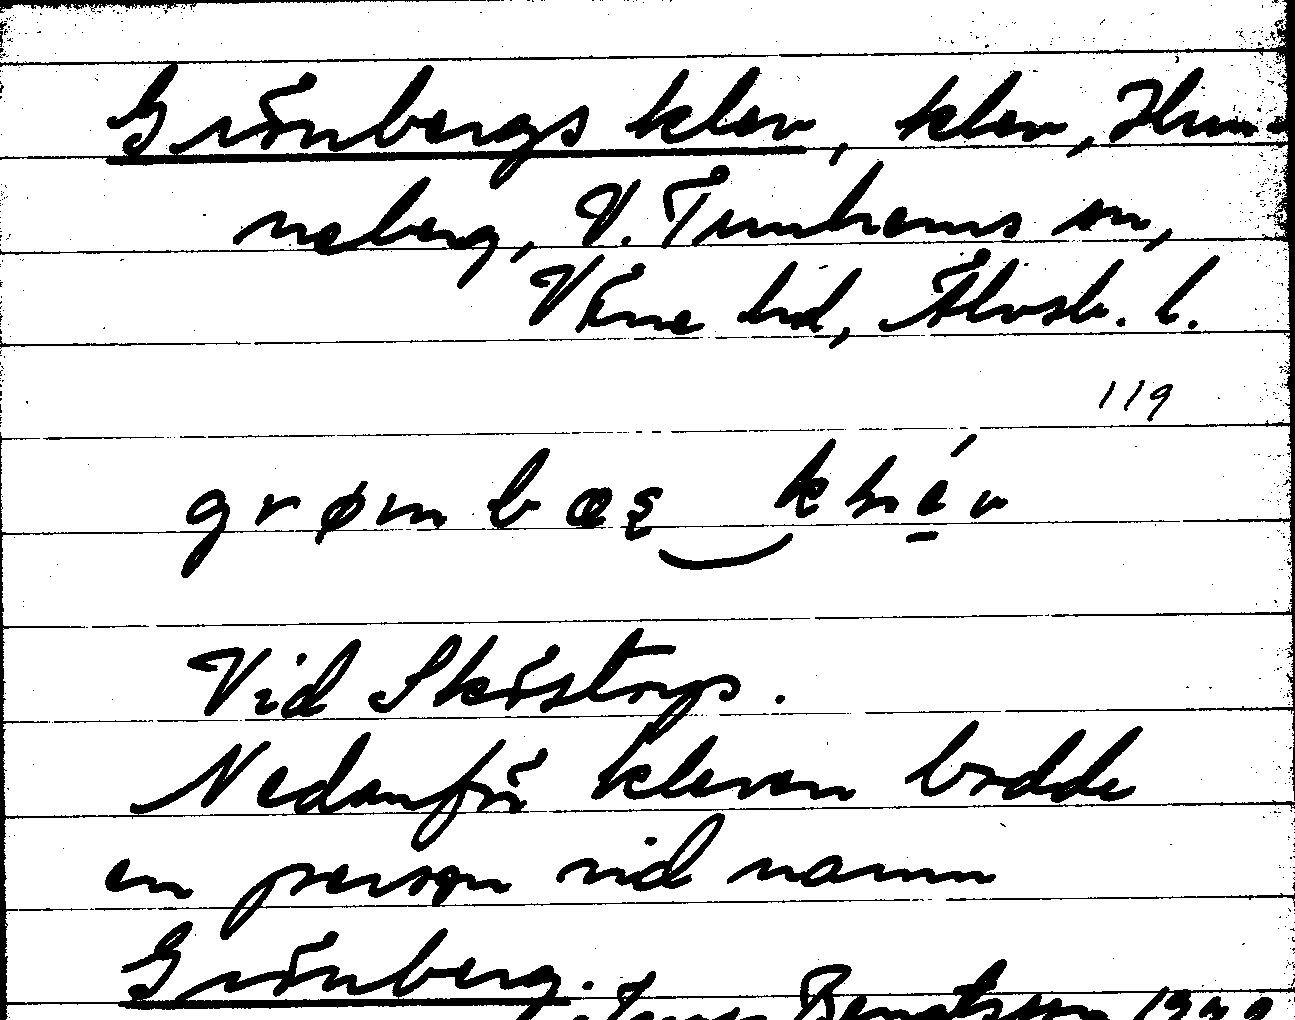 Grönbergs klev, klev, Hun-
neberg, V. Tunhems sn,
Väne hd, Älvsb. l.
119
grømbæș klæ̀v
Vid Sköstorp.
Nedanför kleven bodde
en person vid namn
Grönberg.
Bengtsson